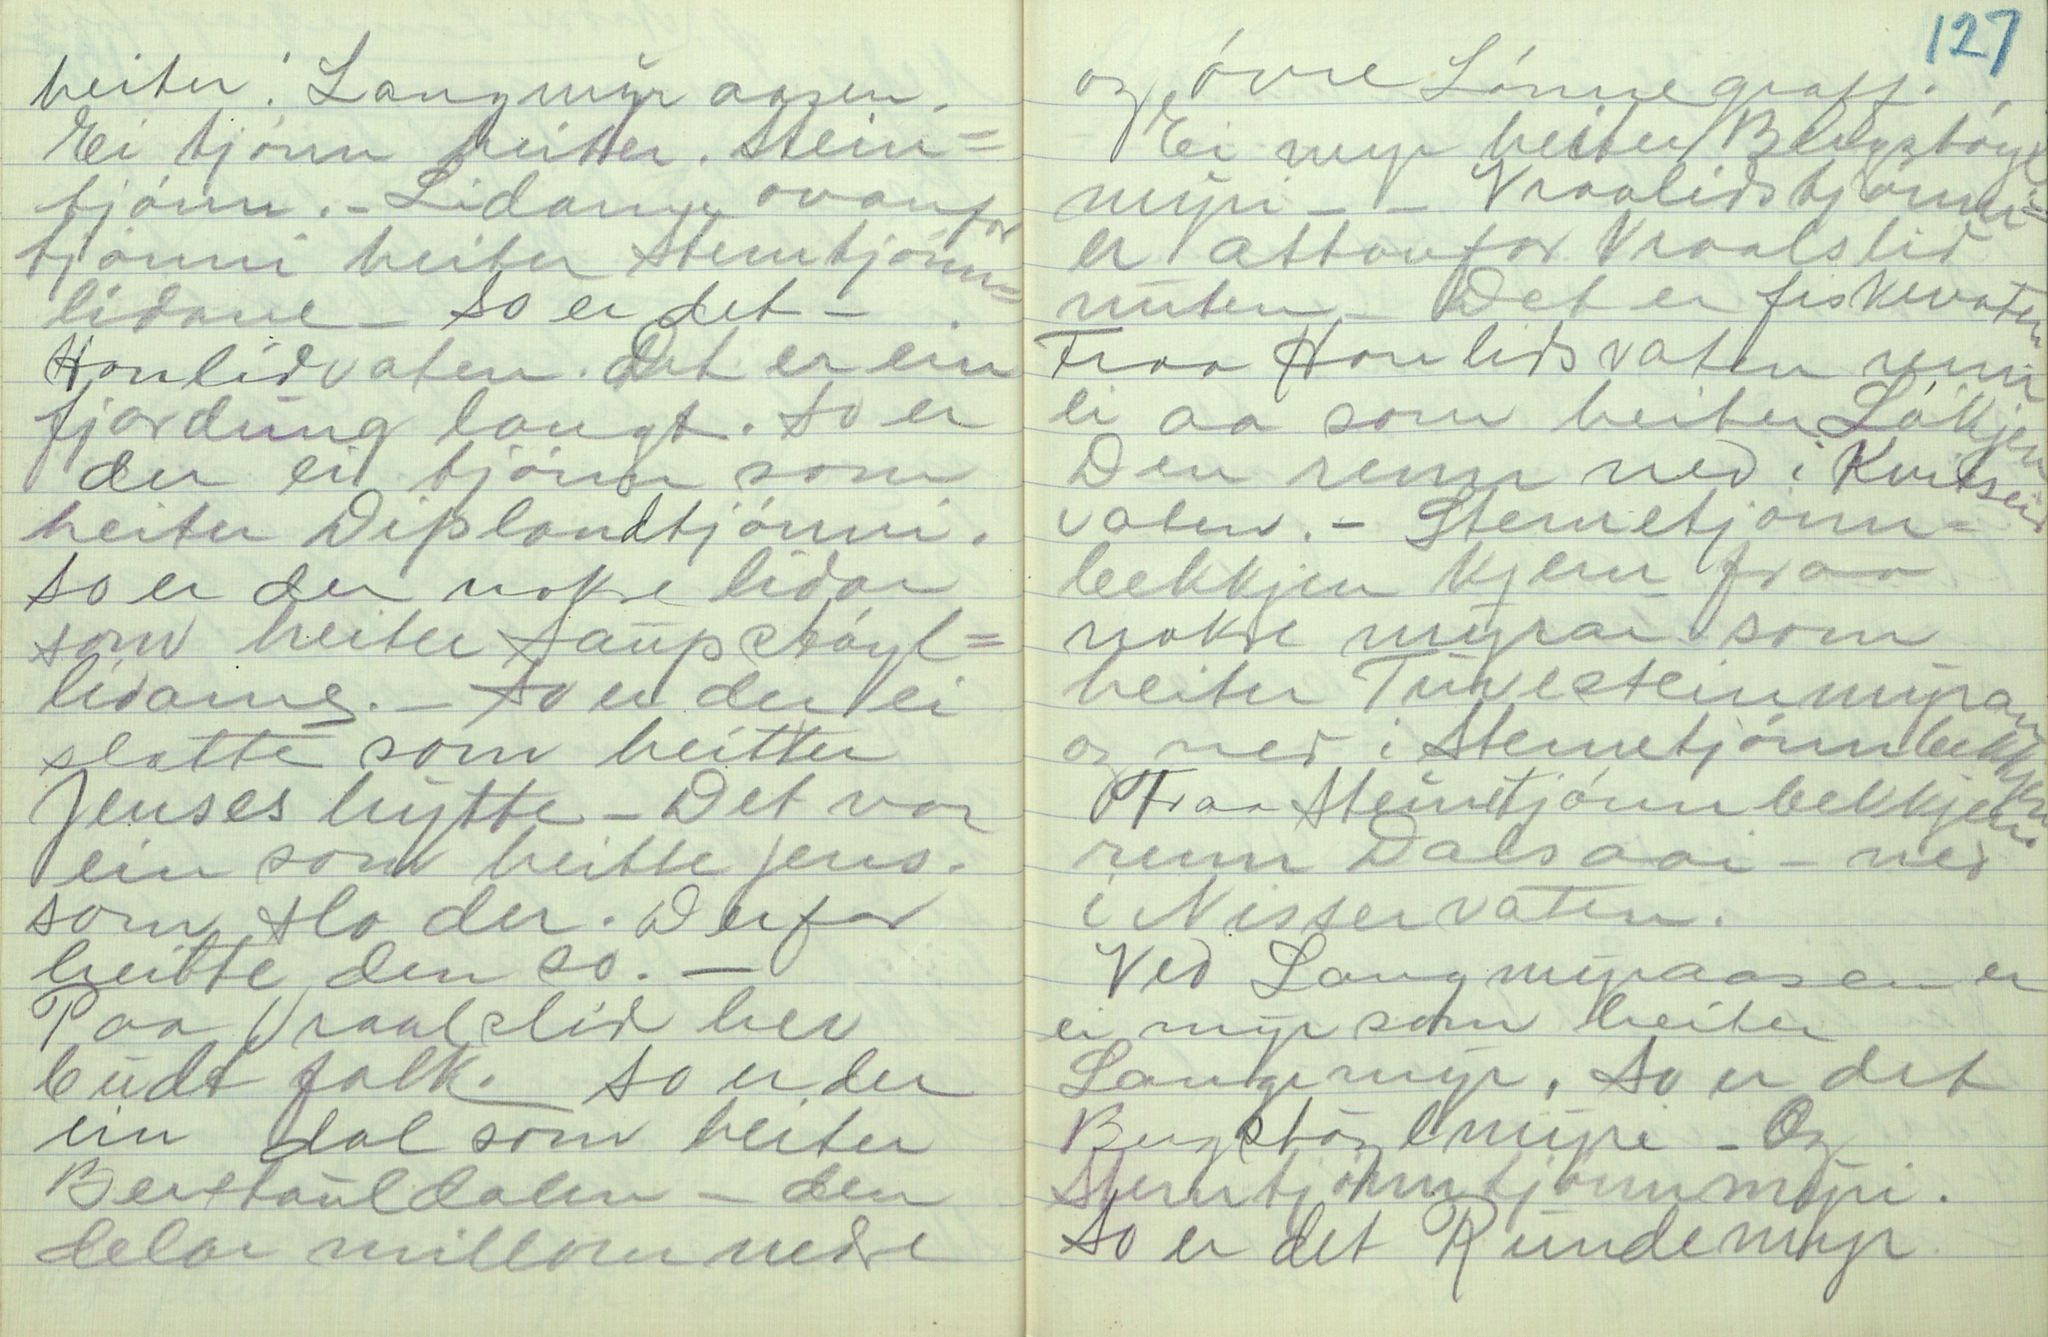 heiter: Langmyr aasen.
Ei tjónn heitter. Stein=
tjónn. - Lidann ovanfor
tjónni heiter Steintjónn=
lidane - So er det -
Honlidvaten. Det er ein
fjordung langt. So er
der ei tjónn som
heiter Diplandtjónni.
So er der nokre lidar
som heiter Saupstóyl=
lidarne. - So er der ei
slatte som heitter
Jenses hytte - Det var
ein som heitte Jens.
som slo der. Derfor
heitte den so. -
Paa Vraalslid hev
budt folk. So er der
ein dal som heiter
Berstauldalen - den
delar millom nedre
127
og óvre Lónnegraff.
Ei myr heiter Bergstóyl
myri - - Vraalidstjónni=
er attanfor Vraalslid
nuten - Det er fiskevaten
Fraa Honlidsvaten renn
ei aa som heiter Lókjen
Den renn ned i Kvitseid
vaten. - Steinetjónn=
bekkjen kjem fraa
nokre myrar som
heiter Tuvesteinmyran
og ned i Steinetjónnbekkjen
Fraa Steinetjónnbekkjen.
renn Dalsaai - ned
i Nisservaten.
Ved Langmyraasen er
ei myr som heiter
Langemyr. So er det
Bergstóylmyri - Og
Steintjónntjónnmyri.
So er det Rundemyr